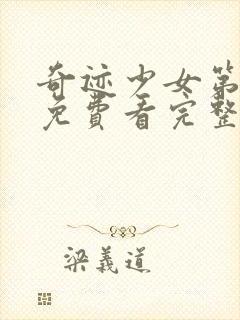 奇迹少女第
免費看完整
梁義道